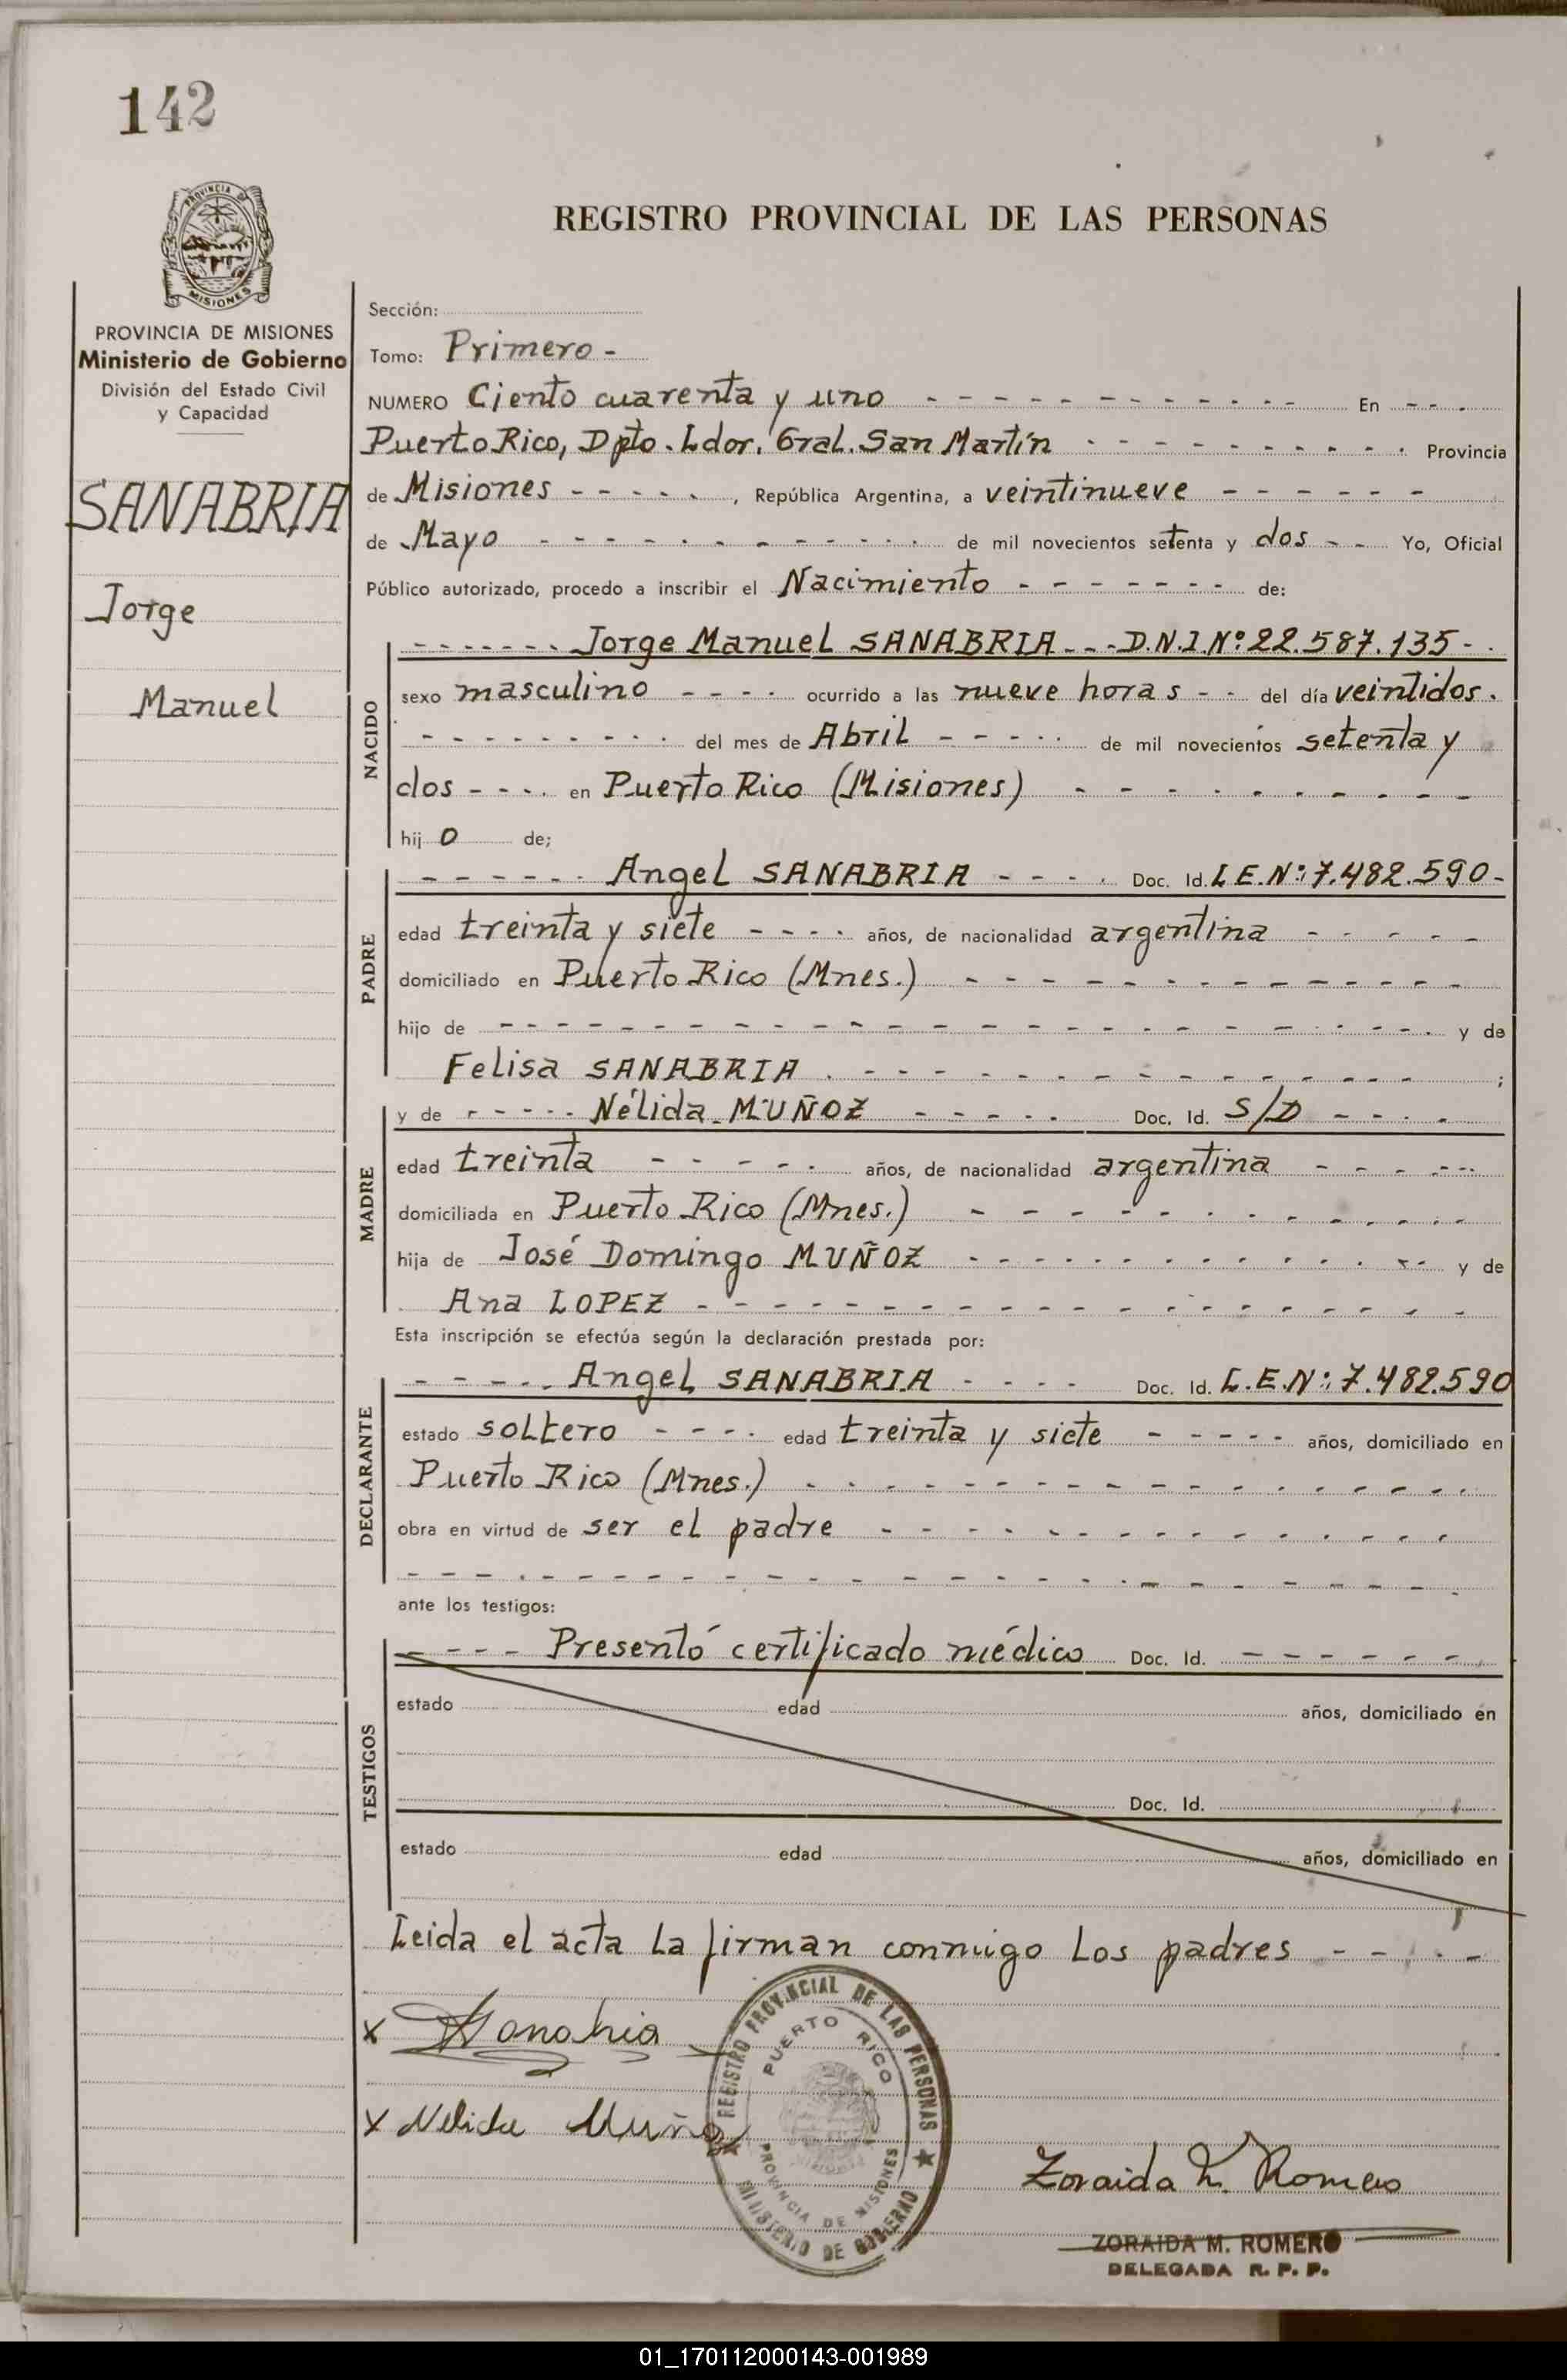 142
PROVINCIA DE
MISIONES
REGISTRO PROVINCIAL DE LAS PERSONAS
PROVINCIA DE MISIONES
Ministerio de Gobierno
División del Estado Civil
y Capacidad
SANABRIA
Jorge
Manuel
Sección:
Tomo: Primero -
NUMERO Ciento cuarenta y uno - - - - - - - - - - - - En - - - -
Puerto Rico, Dpto. Ldor. Gral. San Martín - - - - - - - - - - Provincia
de Misiones - - - - - , República Argentina, a veintinueve - - - - - -
de Mayo - - - - - - - - - - - de mil novecientos setenta y dos - - Yo, Oficial
Público autorizado, procedo a inscribir el Nacimiento - - - - - - - de:
NACIDO
- - - - - - - Jorge Manuel SANABRIA - - - D.N.I.Nº:22.587.135 - .
sexo masculino - - - - ocurrido a las nueve horas - - del día veintidos.
- - - - - - - - - del mes de Abril - - - - - de mil novecientos setenta y
dos - - - - en Puerto Rico (Misiones) - - - - - - - - - -
hij o de;
PADRE
- - - - - - Angel SANABRIA - - - - Doc. Id. L.E.Nº:7.482.590-
edad treinta y siete - - - - años, de nacionalidad argentina - - - - -
domiciliado en Puerto Rico (Mnes.) - - - - - - - - - - - - -
hijo de - - - - - - - - - - - - - - - - - - - - - - y de
Felisa SANABRIA . - - - - - - - - - - - - - - - ;
MADRE
y de - - - - - Nélida MUÑOZ - - - - - Doc. Id. S/D - - - -
edad treinta - - - - - años, de nacionalidad argentina - - - - - -
domiciliada en Puerto Rico (Mnes.) - - - - - - - - - - - - -
hija de José Domingo MUÑOZ - - - - - - - - - - - - - y de
Ana LOPEZ - - - - - - - - - - - - - - - - - - -
Esta inscripción se efectúa según la declaración prestada por:
DECLARANTE
- - - - - Angel SANABRIA - - - - Doc. Id. L.E.Nº:7.482.590
estado soltero - - - - edad treinta y siete - - - - - años, domiciliado en
Puerto Rico (Mnes.) - - - - - - - - - - - - - - - - -
obra en virtud de ser el padre - - - - - - - - - - - - - -
- - - - - - - - - - - - - - - - - - - - - - - - -
ante los testigos:
TESTIGOS
- - - - Presentó certificado médico Doc. Id. - - - - - - -
estado edad años, domiciliado en
Doc. Id.
estado edad años, domiciliado en
Leida el acta la firman conmigo los padres - - - - -
x Sanabria
x Nelida Muñoz
REGISTRO PROVINCIAL DE LAS PERSONAS
PUERTO RICO
PROVINCIA DE MISIONES
MINISTERIO DE GOBIERNO
Zoraida M. Romero
ZORAIDA M. ROMERO
DELEGADA R. P. P.
01_170112000143-001989